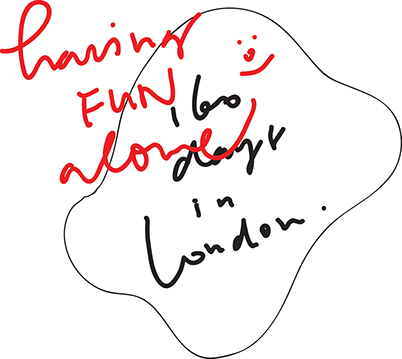 having
FUN
alone
160
days
in
London.